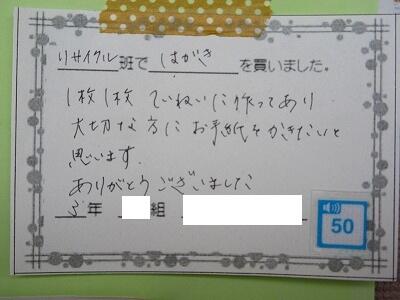 リサイクル班ではがきを買いました。
1枚1枚ていねいに作ってあり
大切な方にお手紙をかきたいと
思います。
ありがとうございました
3年 組
50